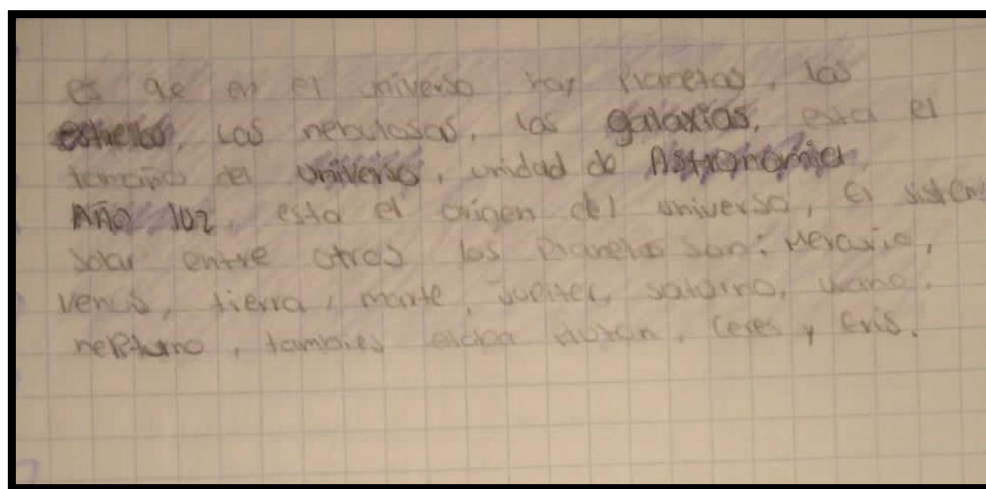 es qe en el universo hay planetas, las
estrellas, las nebulosas, las galaxias, esta el
tamaño del universo, unidad de Astronomia,
AÑO luz, esta el origen del universo, El sistema
solar entre otros los planetas son: Mercurio,
venus, tierra, marte, Jupiter, saturno, urano,
neptuno, tambies Pluton, Ceres y Eris.